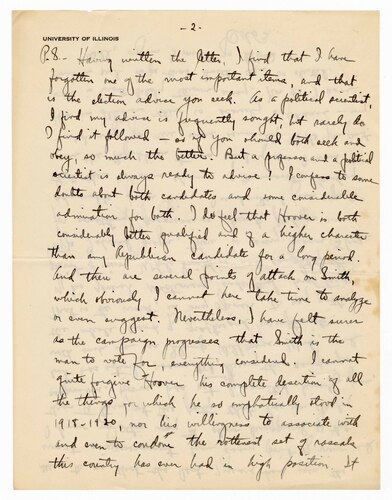 - 2 -
UNIVERSITY OF ILLINOIS
P.S. - Having written the letter, I find that I have
forgotten one of the most important items, and that
is the election advice you seek. As a political scientist,
I find my advice is frequently sought, but rarely do
I find it followed — so if you should both seek and
obey, so much the better. But a professor and a political
scientist is always ready to advise! I confess to some
doubts about both candidates and some considerable
admiration for both. I do feel that Hoover is both
considerably better qualified and of a higher character
than any Republican candidate for a long period.
And there are several points of attack on Smith,
which obviously I cannot here take time to analyze
or even suggest. Nevertheless, I have felt surer
as the campaign progresses that Smith is the
man to vote for, everything considered. I cannot
quite forgive Hoover his complete desertion of all
the things for which he so emphatically stood in
1918-1920, nor his willingness to associate with
and even to condone the rottenest set of rascals
this country has ever had in high position. It